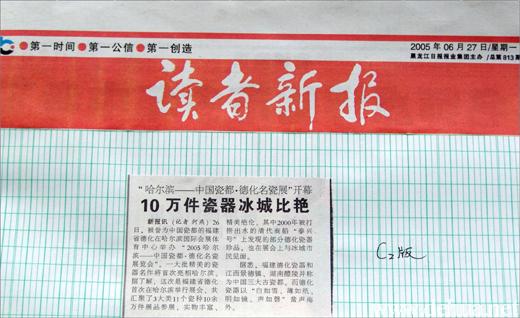 ●第一时间●第一公信●第一创造
2005年06月27日/星期一
黑龙江日报报业集团主办/总第813期
读者新报
“哈尔滨——中国瓷都·德化名瓷展”开幕
10万件瓷器冰城比艳
新报讯（记者 刘燕）26
日，被誉为中国瓷都的福建
省德化在哈尔滨国际会展体
育中心举办“2005哈尔
滨——中国瓷都·德化名瓷
展览会”。一大批精美的瓷
器名作将首次亮相哈尔滨。
据了解，这次是福建省德化
首次在哈尔滨举行展会，共
汇聚了3大类11个瓷种10余
万件展品参展，实物丰富、
精美绝伦，其中2000年被打
捞出水的清代商船“泰兴
号”上发现的部分德化瓷器
珍品，也在展会上与冰城市
民见面。
据悉，福建德化瓷器和
江西景德镇、湖南醴陵并称
为中国三大古瓷都，而德化
瓷器以“白如雪、薄如纸、
明如镜、声如磬”誉声海
外。
C2版